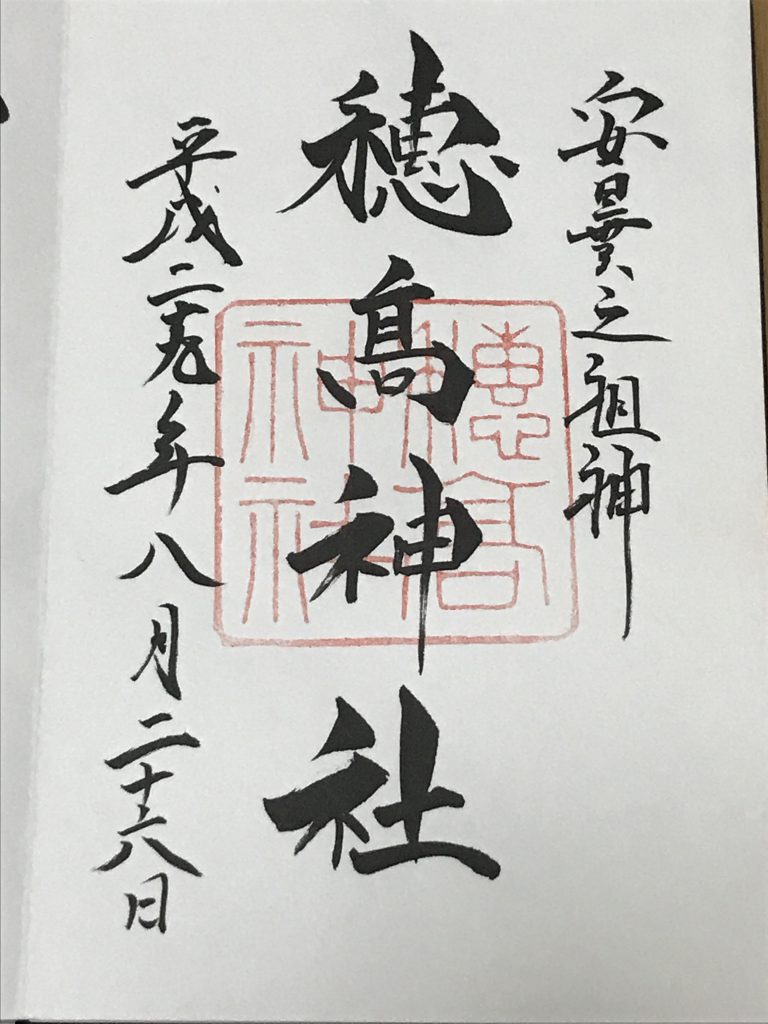 安曇之祖神
穂髙神社
平成二十九年八月二十六日
穂髙
神社
神社